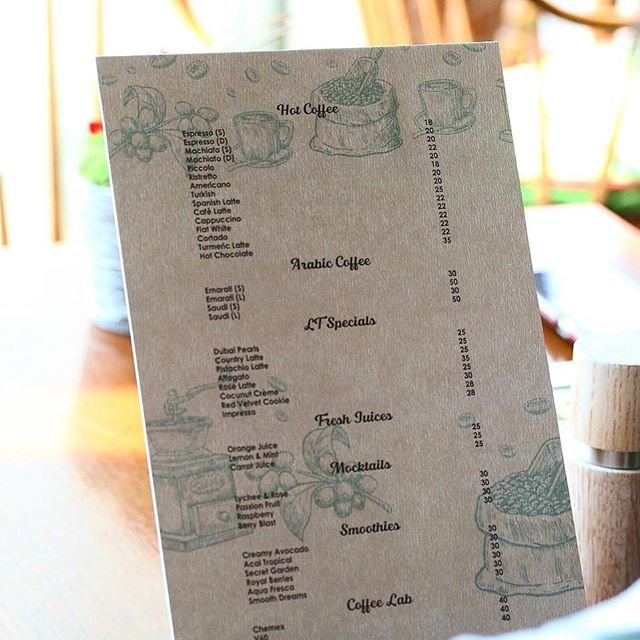 Hot Coffee
Espresso (S) 18
Espresso (D) 20
Machiato (S) 20
Machiato (D) 22
Piccolo 20
Ristretto 18
Americano 20
Turkish 20
Spanish Latte 25
Café Latte 22
Cappuccino 22
Flat White 22
Cortado 22
Turmeric Latte 22
Hot Chocolate 35
Arabic Coffee
Emarati (S) 30
Emarati (L) 50
Saudi (S) 30
Saudi (L) 50
LT Specials
Dubai Pearls 25
Country Latte 25
Pistachio Latte 25
Affogato 35
Rose Latte 25
Cocunut Crème 30
Red Velvet Cookie 28
Impresso 28
Fresh Juices
Orange Juice 25
Lemon & Mint 25
Carrot Juice 25
Mocktails
Lychee & Rose 30
Passion Fruit 30
Raspberry 30
Berry Blast 30
Smoothies
Creamy Avocado 30
Acai Tropical 30
Secret Garden 30
Royal Berries 30
Aqua Fresca 30
Smooth Dreams 30
Coffee Lab
Chemex 40
V60 40
40